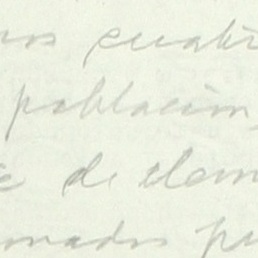 nos cuatr
población,
de elem
onados p